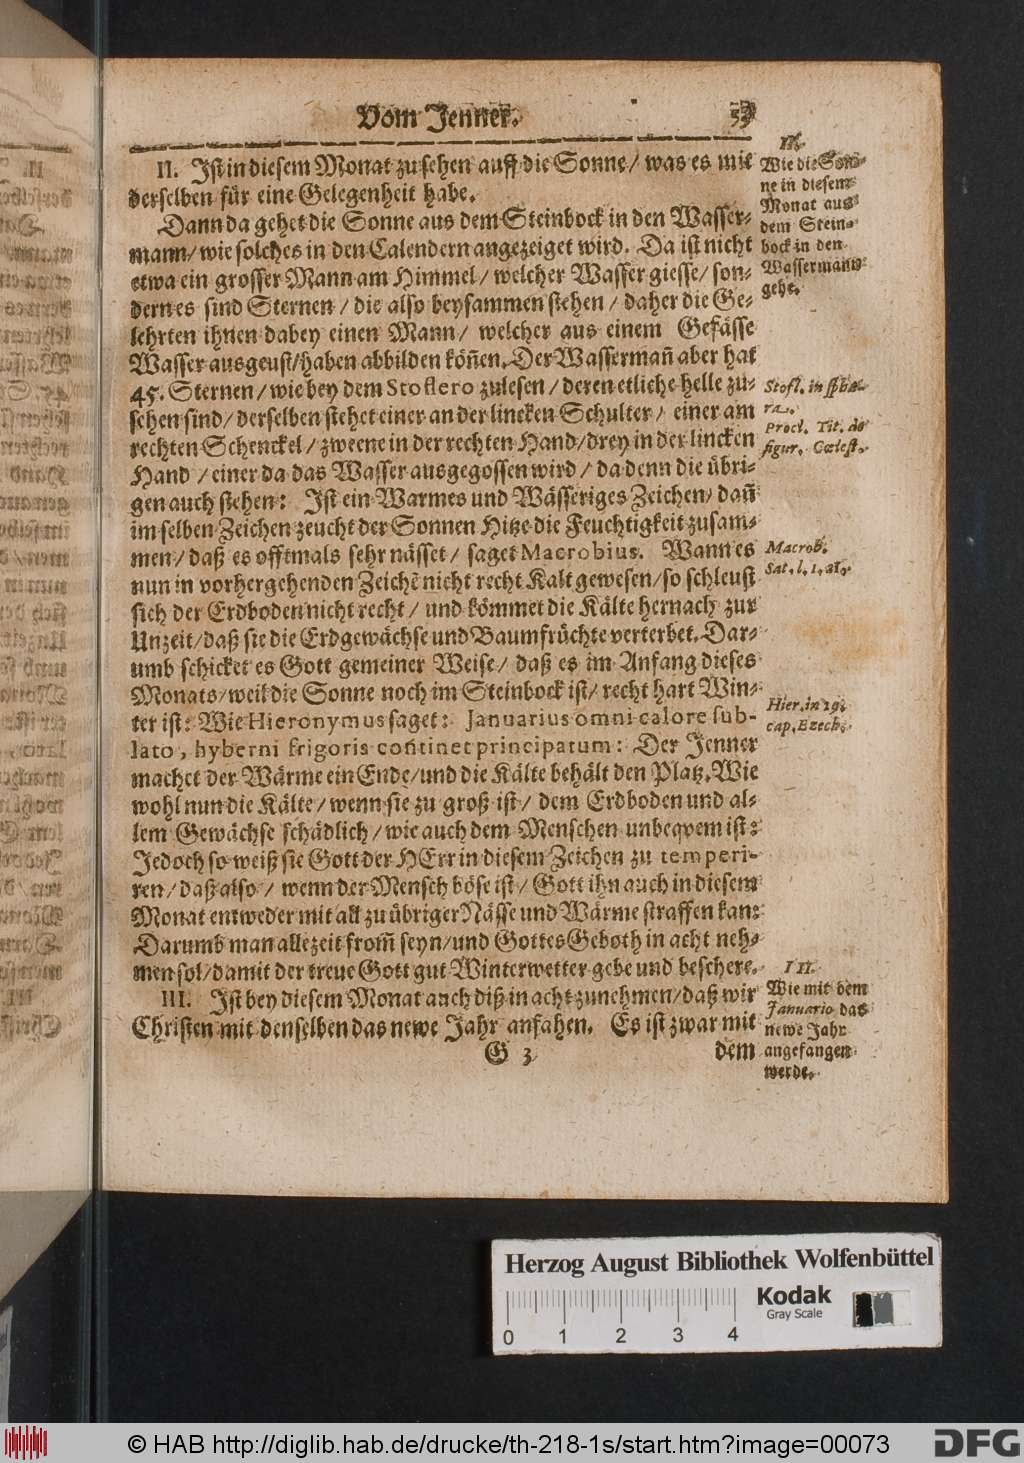 Vom Jenner. 53
II. Ist in diesem Monat zu sehen auff die Sonne/ was es mit
derselben für eine Gelegenheit habe.
Dann da gehet die Sonne aus dem Steinbock in den Wasser-
mann/ wie solches in den Calendern angezeiget wird. Da ist nicht
etwa ein grosser Mann am Himmel/ welcher Wasser giesse/ son-
dern es sind Sternen/ die also beysammen stehen/ daher die Ge-
lehrten ihnen dabey einen Mann/ welcher aus einem Gefässe
Wasser ausgeust/ haben abbilden köñen. Der Wassermañ aber hat
45. Sternen/ wie bey dem Stoflero zulesen/ deren etliche helle zu-
sehen sind/ derselben stehet einer an der lincken Schulter/ einer am
rechten Schenckel/ zweene in der rechten Hand/ drey in der lincken
Hand/ einer da das Wasser ausgegossen wird/ da denn die übri-
gen auch stehen: Ist ein Warmes und Wässeriges Zeichen/ dañ
im selben Zeichen zeucht der Sonnen Hitze die Feuchtigkeit zusam-
men/ daß es offtmals sehr nässet/ saget Macrobius. Wann es
nun in vorhergehenden Zeichē nicht recht Kalt gewesen/ so schleust
sich der Erdboden nicht recht/ und kömmet die Kälte hernach zur
Unzeit/ daß sie die Erdgewächse und Baumfrüchte verterbet. Dar-
umb schicket es Gott gemeiner Weise/ daß es im Anfang dieses
Monats/ weil die Sonne noch im Steinbock ist/ recht hart Win-
ter ist: Wie Hieronymus saget: Januarius omni calore sub-
lato, hyberni frigoris continet principatum: Der Jenner
machet der Wärme ein Ende/ und die Kälte behält den Platz. Wie
wohl nun die Kälte/ wenn sie zu groß ist/ dem Erdboden und al-
lem Gewächse schädlich/ wie auch dem Menschen unbeqvem ist:
Jedoch so weiß sie Gott der HErr in diesem Zeichen zu temperi-
ren/ daß also/ wenn der Mensch böse ist/ Gott ihn auch in diesem
Monat entweder mit all zu übriger Nässe und Wärme straffen kan:
Darumb man allezeit from̃ seyn/ und Gottes Geboth in acht neh-
men sol/ damit der treue Gott gut Winterwetter gebe und beschere.
III. Ist bey diesem Monat auch diß in acht zunehmen/ daß wir
Christen mit denselben das newe Jahr anfahen. Es ist zwar mit
G 3 dem
II.
Wie die Son-
ne in diesem
Monat aus
dem Stein-
bock in den
Wassermann
gehe.
Stofl. in
Procl. Tit. de
figur. Cœlest.
Macrob.
Sat. l. 1. 21.
Hier. in 29.
cap. Ezech.
III.
Wie mit dem
Januario das
newe Jahr
angefangen
werde.
Herzog August Bibliothek Wolfenbüttel
Kodak
Gray Scale
0 1 2 3 4
© HAB http://diglib.hab.de/drucke/th-218-1s/start.htm?image=00073
DFG